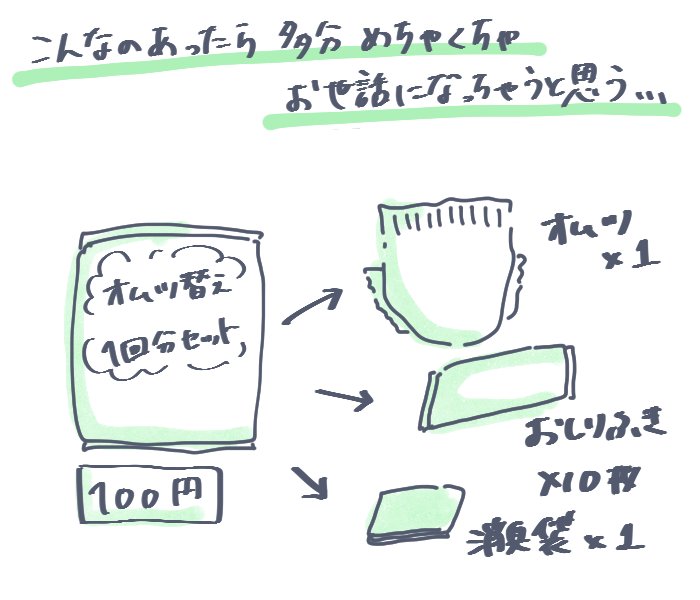 こんなのあったら 多分 めちゃくちゃ
お世話になっちゃうと思う...
オムツ替え
1回分セット
100円
オムツ
×1
おしりふき
×10枚
消臭袋×1